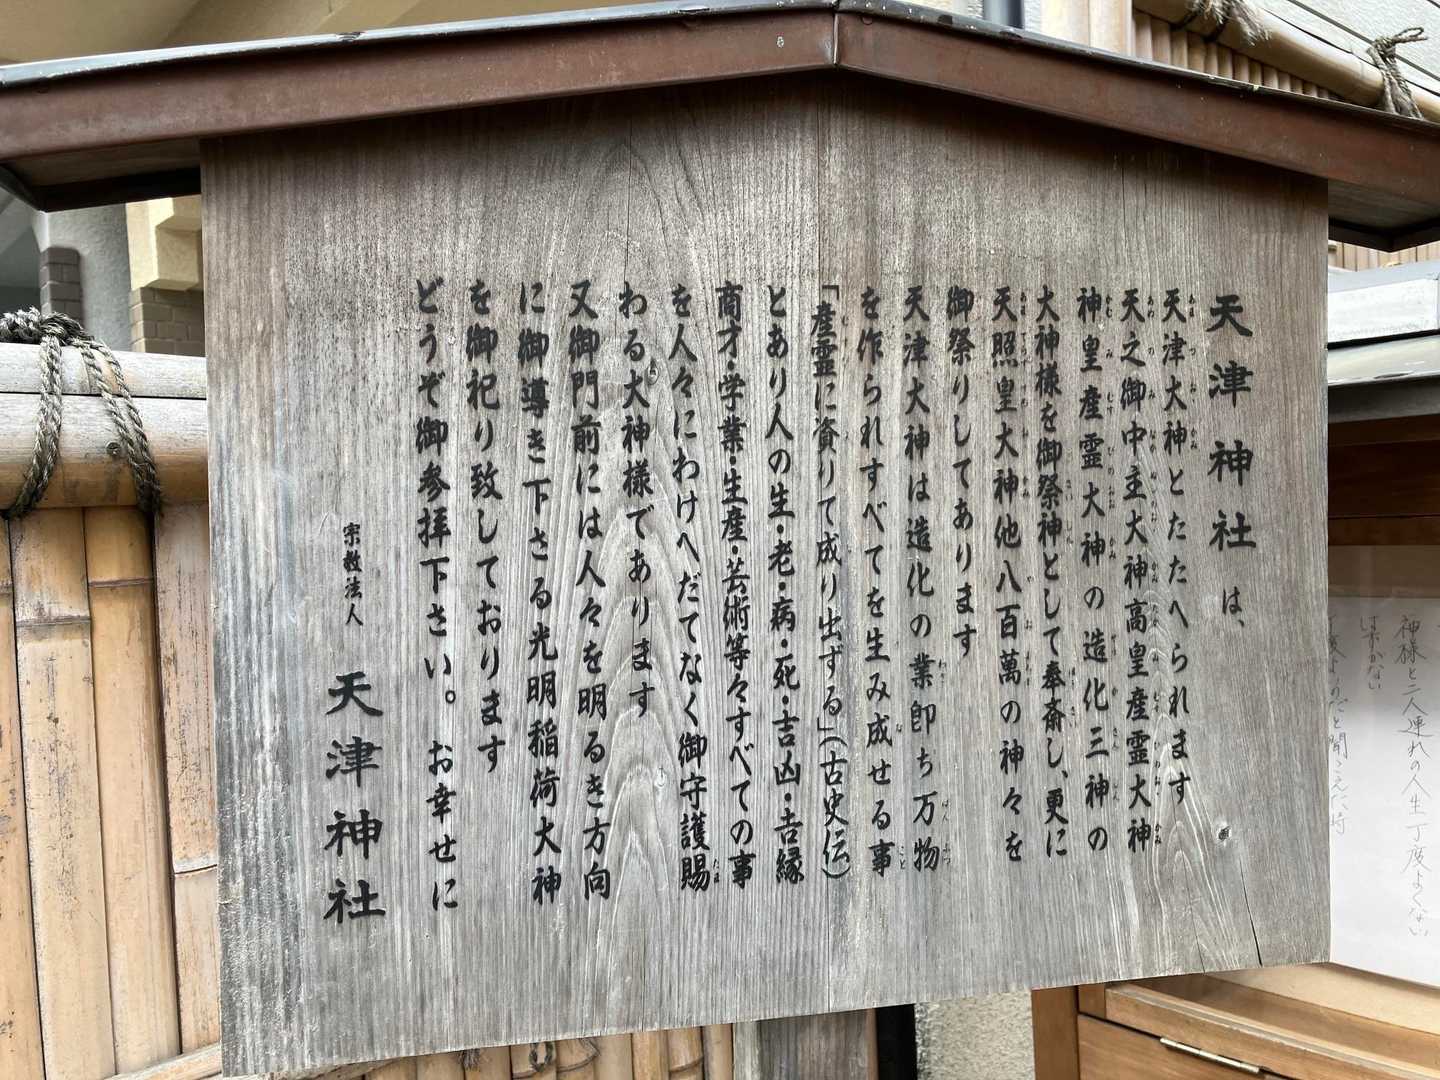 天津神社は、
天津大神とたたへられます
天之御中主大神高皇産霊大神
神皇産霊大神の造化三神の
大神様を御祭神として奉斎し、更に
天照皇大神他八百萬の神々を
御祭りしてあります
天津大神は造化の業即ち万物
を作られすべてを生み成せる事
「産霊に資りて成り出ずる」(古史伝)
とあり人の生・老・病・死・吉凶・吉縁
商才・学業・生産・芸術等々すべての事
を人々にわけへだてなく御守護賜
わる大神様であります
又御門前には人々を明るき方向
に御導き下さる光明稲荷大神
を御祀り致しております
どうぞ御参拝下さい。お幸せに
宗教法人 天津神社
神様と二人連れの人生丁度よくない
はずがない